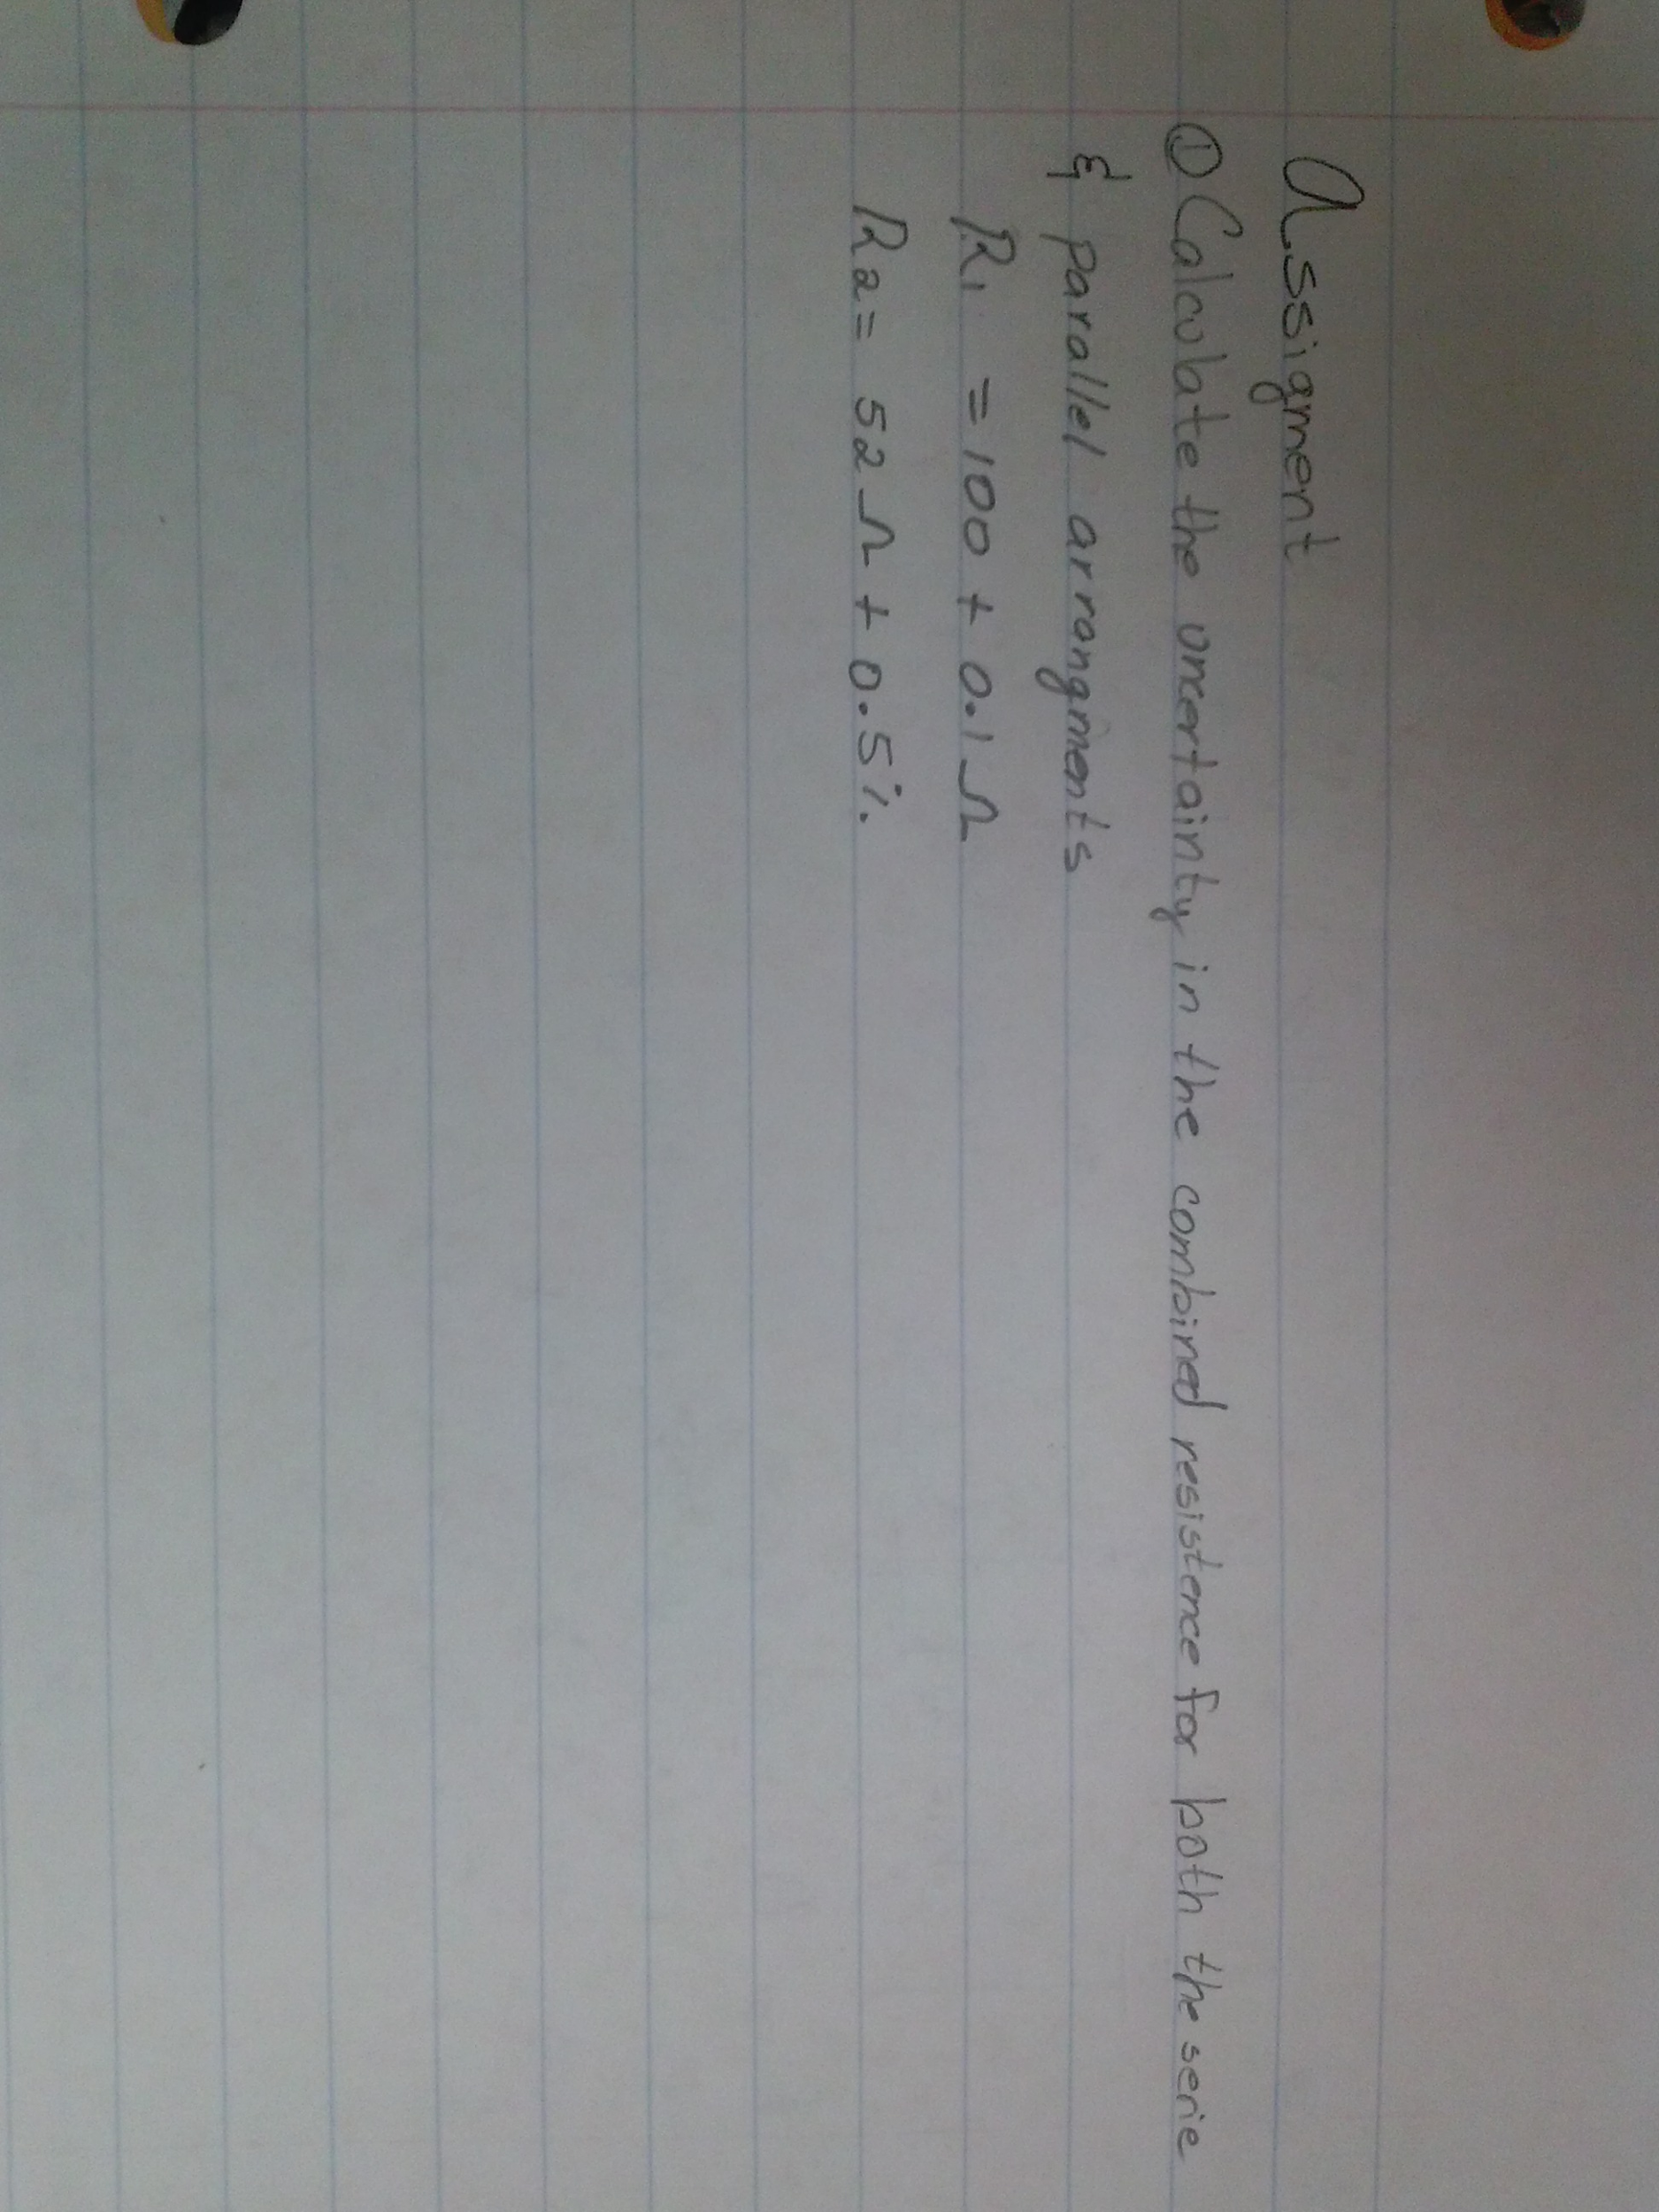 Assigment
① Calculate the uncertainty in the combined resistence for both the serie
& parallel arrangments
R1 = 100 + 0.1Ω
R2 = 52Ω + 0.5%